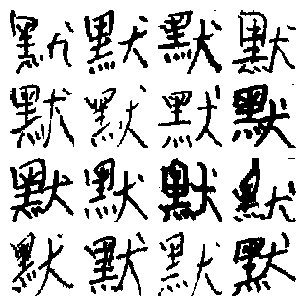 默默默默
默默默默
默默默默
默默默默